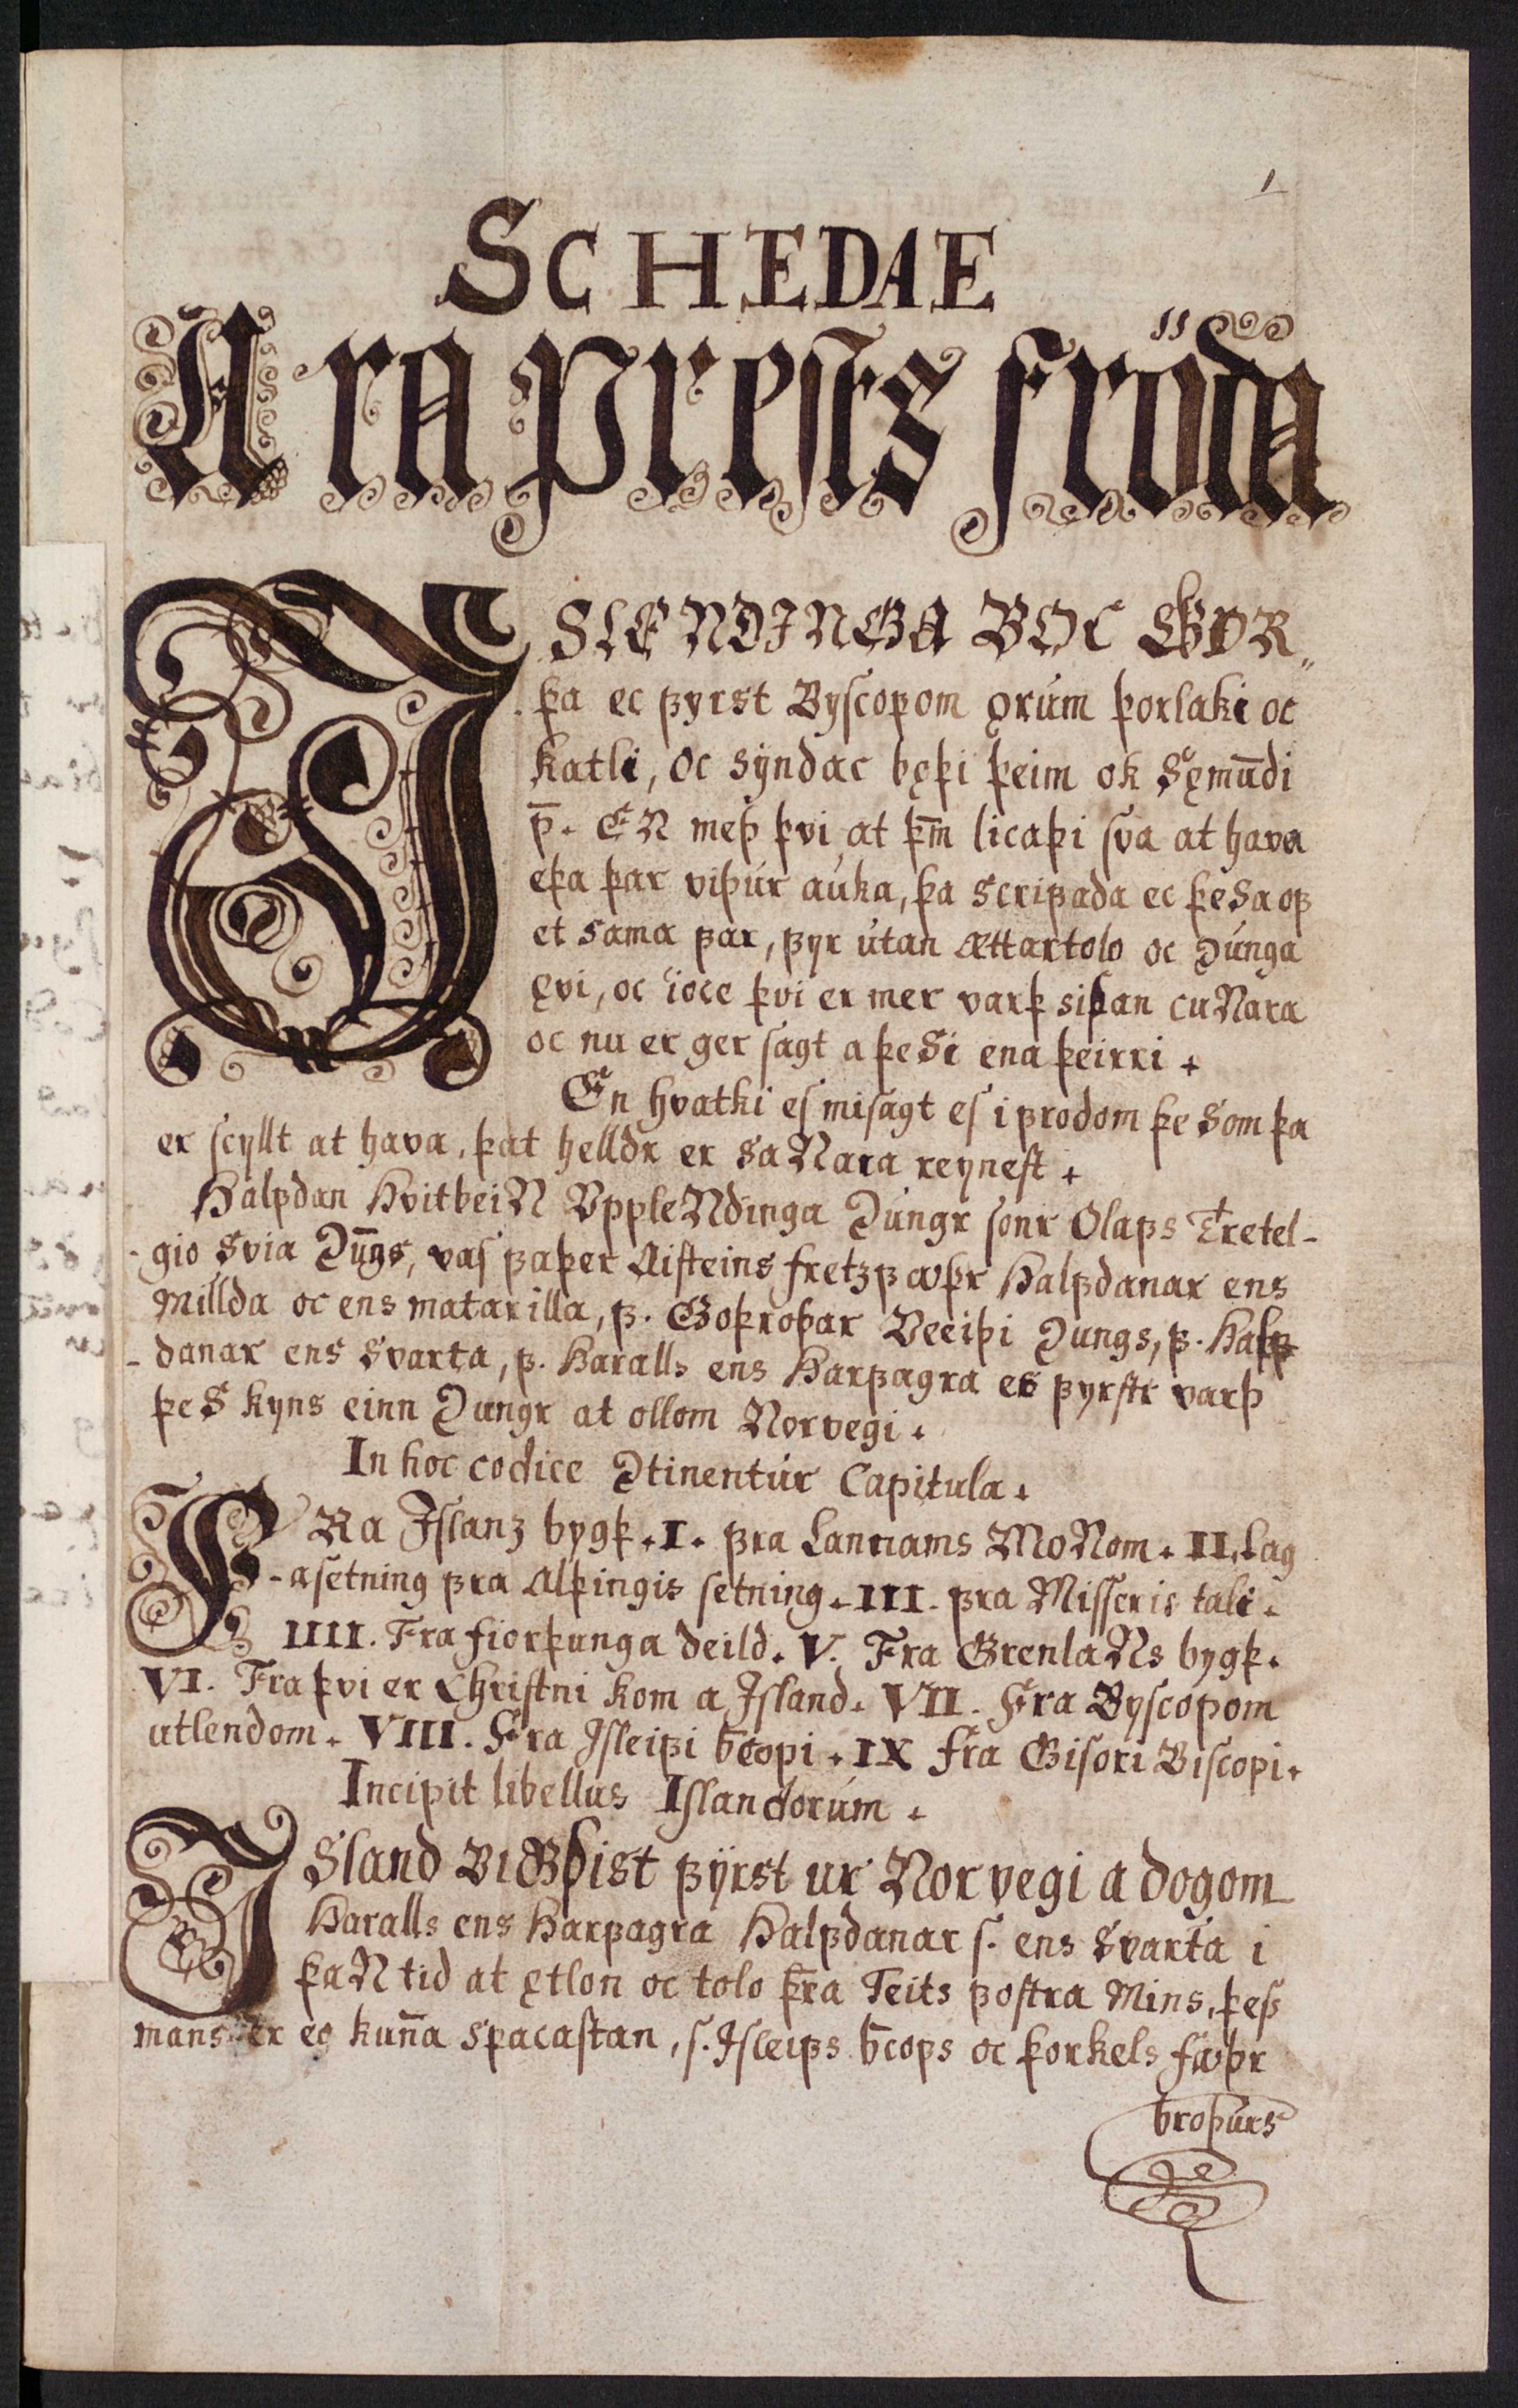 1
SCHEDAE
Ara prests fröda
ISLENDINGA BOC GØR„
þa ec ꝼyrst Byscopom ǫrúm þorlaki oc
katli, oc sÿndac bęþi þeim ok Sęmūdi
p̄. EN meþ þvi at þm̄ licaþi sva at hava
eþa þar viþúr aúka, þa scriꝼada ec þeSa oꝼ
et sama ꝼar, ꝼyr útan Ættartolo oc Ꝯúnga
ęvi, oc ioce þvi er mer varþ siþan cuNara
oc nu er ger sagt a þeSi ena þeirri +
En hvatki es misagt es i ꝼrodom þeSom þa
er scyllt at hava, þat helldr er SaNara reynest +
Halꝼdan HvitbeiN VppleNdinga Ꝯúngr sonr Olaꝼs Tretel-
- gio Svia Ꝯūgs, vas ꝼaþer Aisteins fretz ꝼꜹþr Halꝼdanar ens
Millda oc ens matarilla, ꝼ. Goþroþar Veeiþi Ꝯungs, ꝼ. Halꝼ
- danar ens Svarta, ꝼ. Haralls ens Harꝼagra es ꝼyrstr varþ
þeS kyns einn Ꝯungr at ollom Norvegi +
In hoc codice Ꝯtinentúr Capitula +
FRa Islanz bygþ + I + ꝼra Lannams MoNom + II + Lag
- asetning ꝼra Alþingis setning + III - ꝼra Misseris tali +
IIII. Fra fiorþunga deild. V. Fra GrenlaNs bygþ.
VI. Fra þvi er Christni kom a Island. VII. Fra Byscopom
utlendom. VIII. Fra Isleiꝼi b̄copi + IX fra Gisori Biscopi +
Incipit libellus Islandorúm +
ISland BIGþist ꝼÿrst ur Norvegi a dogom
Haralls ens Harꝼagra Halꝼdanar s. ens Svarta i
þaN tid at ętlon oc tolo þra Teits ꝼostra Mins, þess
mans er eg kun̄a Spacastan, s. Isleiꝼs b̄cops oc þorkels fꜹþr
broþúrs